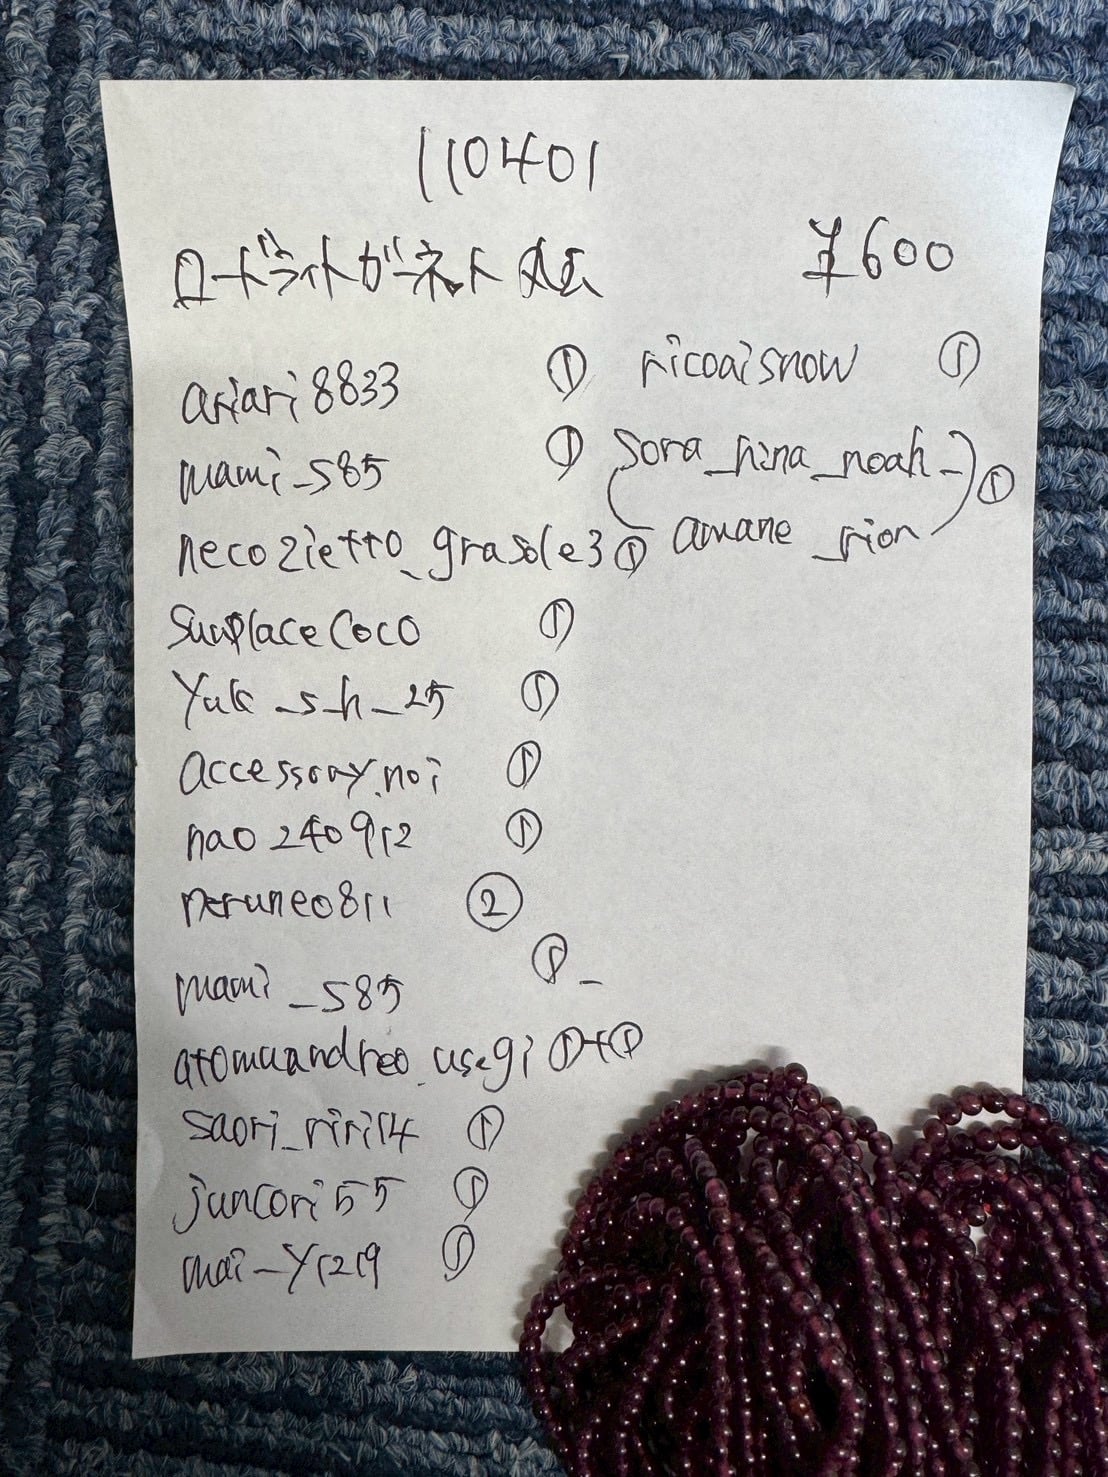 110401
ロードライトガーネット 丸玉
¥600
ariari8833 ①
mami_585 ①
necozietto_grasole3 ①
SunplaceCoco ①
Yuk_s_h_25 ①
accessory.noi ①
nao240912 ①
neruneo811 ②
mami_585 ①
atomuandreo_usagi ①+①
saori_riri14 ①
juncori55 ①
mai_y1219 ①
ricoaisnow ①
sora_hina_noah_ ①
amane_rion